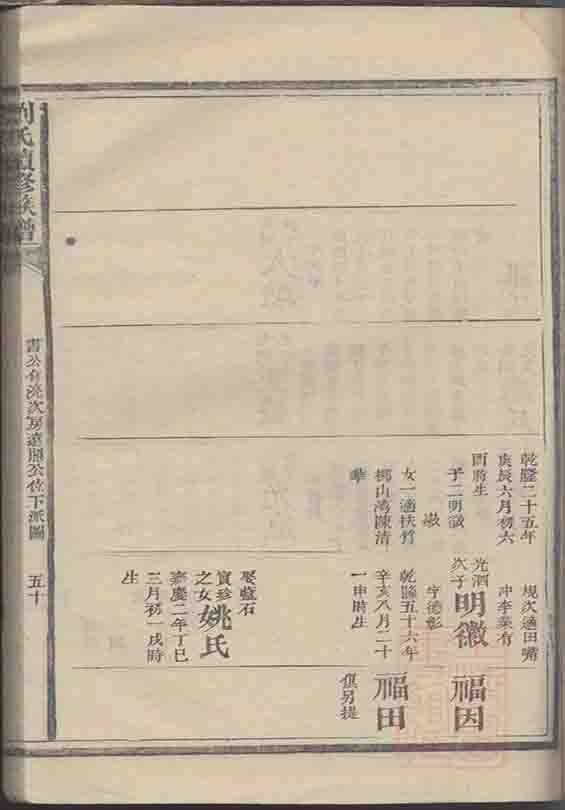 乾隆二十五年
庚辰六月初六
酉時生
子二明誠
徽
女一適扶竹
鄉山灣陳清
華
規次適田嘴
沖李榮有
光泗
次子
明徽
字德彰
乾隆五十六年
辛亥八月二十
一申時生
娶藍石
寶珍
之女
姚氏
嘉慶二年丁巳
三月初一戌時
生
福因
福田
俱另提
劉氏 修族譜
書公 次房遠照公位下派圖
五十